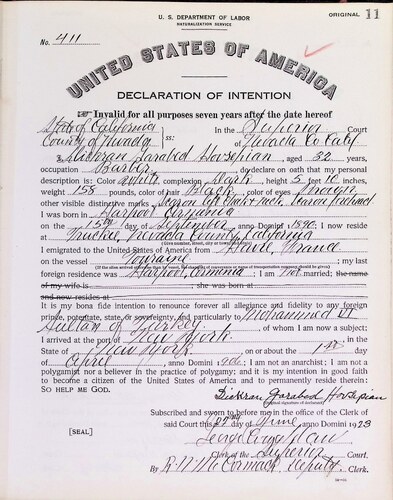 U. S. DEPARTMENT OF LABOR
NATURALIZATION SERVICE
ORIGINAL 11
No. 411
UNITED STATES OF AMERICA
DECLARATION OF INTENTION
Invalid for all purposes seven years after the date hereof
State of California
County of Nevada ss: In the Superior Court
of Nevada Co Calif
I, Dickran Garabed Housepian, aged 32 years,
occupation Barber, do declare on oath that my personal
description is: Color white, complexion Dark, height 5 feet inches,
weight 158 pounds, color of hair Black, color of eyes Brown
other visible distinctive marks
I was born in Harpoot Armenia
on the 15th day of September, anno Domini 1890; I now reside
at Truckee, Nevada County, California
(Give number, street, city or town, and State.)
I emigrated to the United States of America from Havre, France
on the vessel Touraine; my last
(If the alien arrived otherwise than by vessel, the character of conveyance or name of transportation company should be given)
foreign residence was Harpoot, Armenia; I am not married; the name
of my wife is; she was born at
and now resides at
It is my bona fide intention to renounce forever all allegiance and fidelity to any foreign
prince, potentate, state, or sovereignty, and particularly to Mohammed VI
Sultan of Turkey, of whom I am now a subject;
I arrived at the port of New York, in the
State of New York, on or about the 1st day
of April, anno Domini; I am not an anarchist; I am not a
polygamist nor a believer in the practice of polygamy; and it is my intention in good faith
to become a citizen of the United States of America and to permanently reside therein:
SO HELP ME GOD.
Dickran Garabed Housepian
(Original signature of declarant.)
Subscribed and sworn to before me in the office of the Clerk of
said Court this day of June, anno Domini 1923
[SEAL]
Clerk of the Superior Court.
By R. N. McCormack, Deputy Clerk.